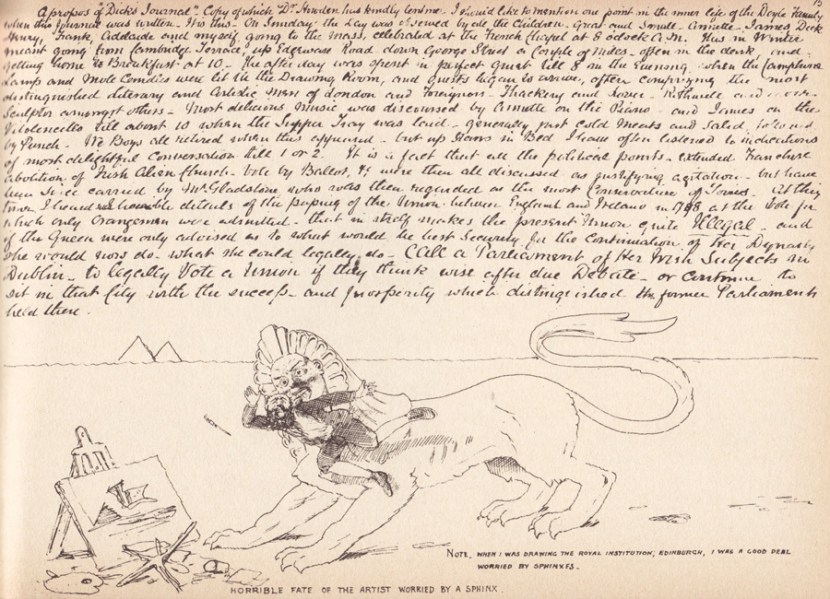 15
Apropos of Dick's Journal - Copy of which "Dr" Hawden has kindly lent me. I should like to mention one point in the inner life of the Doyle Family
when this Journal was written. It is this. On Sunday the day was observed by all the Children. Great and Small. Annette. James Dick
Henry, Frank, Adelaide and myself going to the Mass, celebrated at the French Chapel at 8 oclock A.M. This in Winter
meant going from Cambridge Terrace, up Edgeware Road down George Street a Couple of Miles - often in the dark, and
getting home to Breakfast at 10 - The after day was spent in perfect quiet till 8 in the Evening when the Camphine
Lamp and Mold Candles were lit in the Drawing Room, and guests began to arrive, often comprising the most
distinguished Literary and Artistic Men of London and Foreigners - Thackery and
Sculptor amongst others - Most delicious Music was discoursed by Annette on the Piano - and James on the
Violoncello till about 10 when the Supper Tray was laid - generally just cold Meats and Salad, followed
by Punch - We Boys all retired when this appeared - but up Stairs in Bed I have often listened to indications
of most delightful Conversation till 1 or 2. It is a fact that all the political points - extended Franchise
abolition of Irish Alien Church - Vote by Ballot, &c were then all discussed as justifying agitation - but have
been since carried by Mr Gladstone who was then regarded as the most Conservative of Tories. At this
time I heard horrible details of the passing of the Union between England and Ireland in 1798 at the Vote for
which only Orangemen were admitted - that in itself makes the present Union quite Illegal - and
if the Queen were only advised as to what would be best Security for the Continuation of Her Dynasty
She would now do - what she could legally do - Call a Parliament of Her Irish Subjects in
Dublin - to legally Vote a Union if they think wise after due Debate - or Continue to
sit in that City with the success - and prosperity which distinguished the former Parliaments
held there.
NOTE, WHEN I WAS DRAWING THE ROYAL INSTITUTION, EDINBURGH, I WAS A GOOD DEAL
WORRIED BY SPHINXES.
HORRIBLE FATE OF THE ARTIST WORRIED BY A SPHINX.